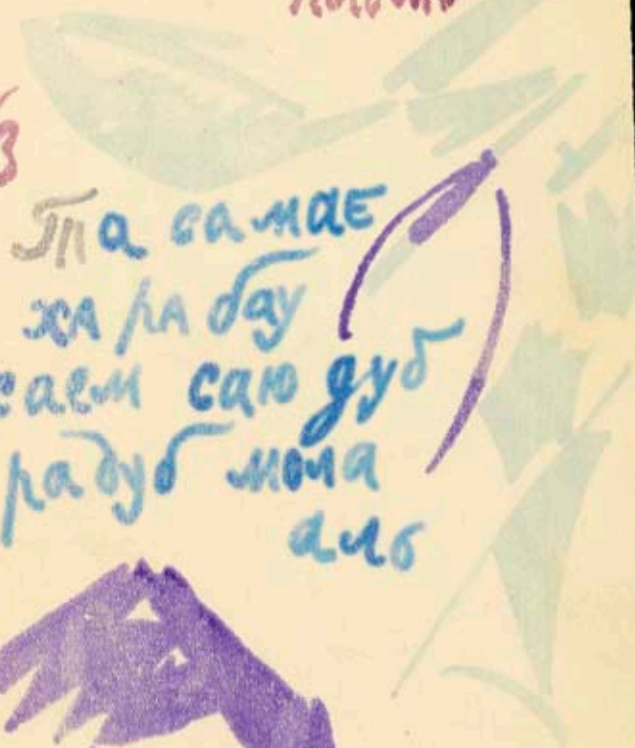 Та са мае
ха ра бау
саем саю дуб
радуб мола
аль